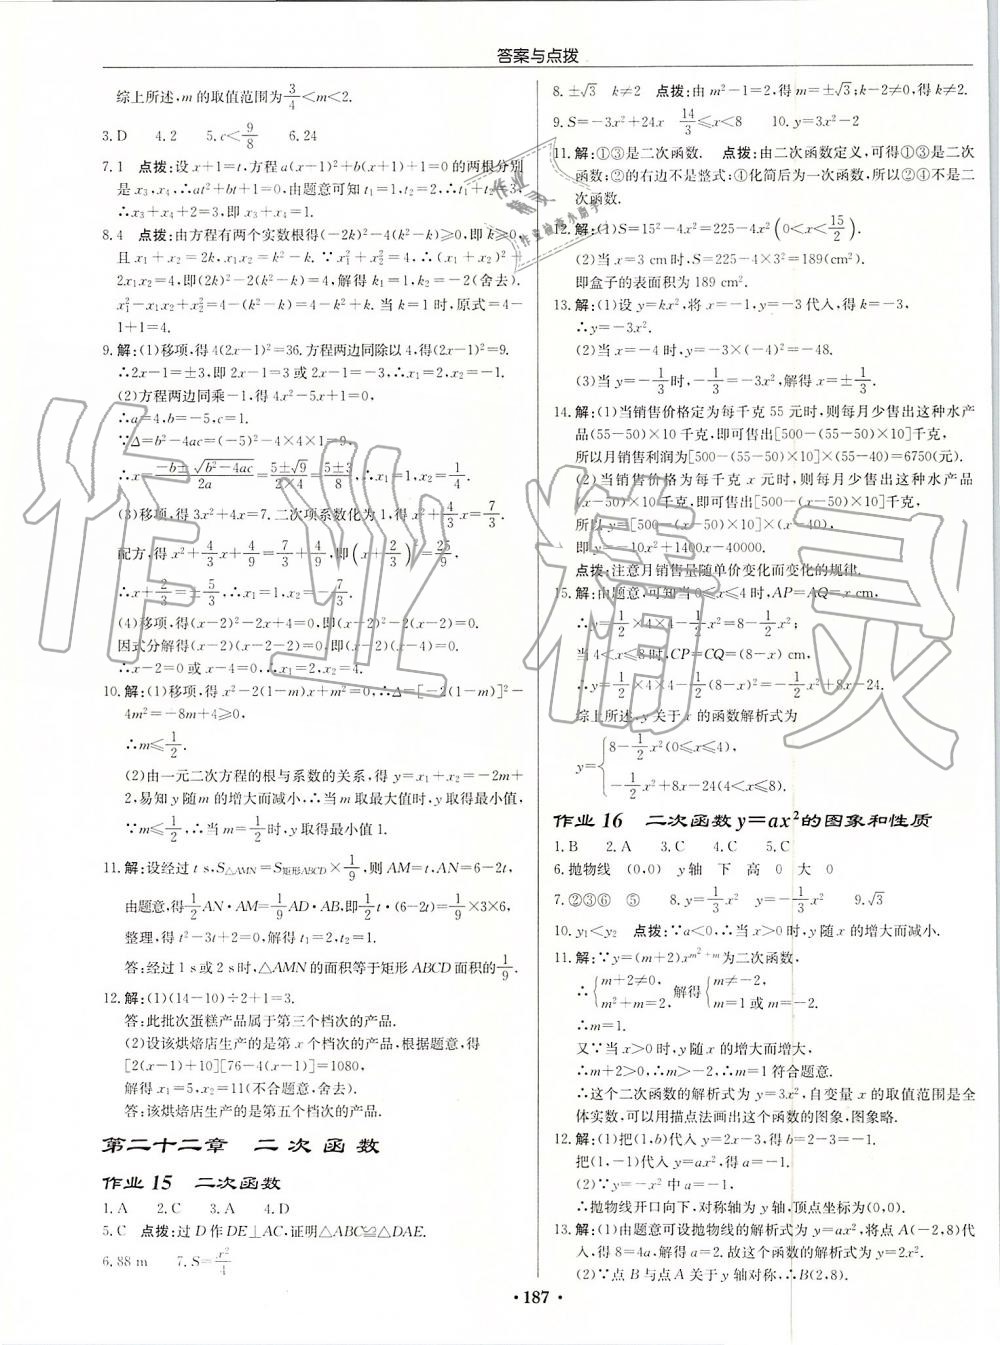 答案与点拨
综上所述,m 的取值范围为3/4<m<2.
3. D 4. 2 5. c<9/8 6. 24
7. 1 点拨:设 x+1=t,方程 a(x-1)²+b(x+1)+1=0 的两根分别
是 x₃,x₄,∴at²+bt+1=0,由题意可知 t₁=1,t₂=2,∴t₁+t₂=3,
∴x₃+x₄+2=3,即 x₃+x₄=1.
8. 4 点拨:由方程有两个实数根得(-2k)²-4(k²-k)≥0,即 k≥0,
且 x₁+x₂=2k,x₁x₂=k²-k. ∵x₁²+x₂²=4,∴(x₁+x₂)²-
2x₁x₂=4,即(2k)²-2(k²-k)=4,解得 k₁=1,k₂=-2(舍去).
x₁²-x₁x₂+x₂²=4-(k²-k)=4-k²+k. 当 k=1 时,原式=4-
1+1=4.
9. 解:(1)移项,得 4(2x-1)²=36. 方程两边同除以 4,得(2x-1)²=9.
∴2x-1=±3,即 2x-1=3 或 2x-1=-3,∴x₁=2,x₂=-1.
(2)方程两边同乘-1,得 4x²-5x+1=0,
∴a=4,b=-5,c=1.
∵Δ=b²-4ac=(-5)²-4×4×1=9,
∴x=(-b±√(b²-4ac))/2a=(5±√9)/(2×4)=(5±3)/8,∴x₁=1,x₂=1/4.
(3)移项,得 3x²+4x=7,二次项系数化为 1,得 x²+4/3x=7/3.
配方,得 x²+4/3x+4/9=7/3+4/9,即(x+2/3)²=25/9,
∴x+2/3=±5/3,∴x₁=1,x₂=-7/3.
(4)移项,得(x-2)²-2x+4=0,即(x-2)²-2(x-2)=0.
因式分解得(x-2)(x-2-2)=0,即(x-2)(x-4)=0.
∴x-2=0 或 x-4=0,∴x₁=2,x₂=4.
10. 解:(1)移项,得 x²-2(1-m)x+m²=0,∴Δ=[-2(1-m)]²-
4m²=-8m+4≥0,
∴m≤1/2.
(2)由一元二次方程的根与系数的关系,得 y=x₁+x₂=-2m+
2,易知 y 随 m 的增大而减小,∴当 m 取最大值时,y 取得最小值,
∵m≤1/2,∴当 m=1/2时,y 取得最小值 1.
11. 解:设经过 t s,S△AMN=S矩形ABCD×1/9,则 AM=t,AN=6-2t,
由题意,得1/2AN·AM=1/9AD·AB,即1/2t·(6-2t)=1/9×3×6,
整理,得 t²-3t+2=0,解得 t₁=1,t₂=2.
答:经过 1 s 或 2 s 时,△AMN 的面积等于矩形 ABCD 面积的1/9.
12. 解:(1)(14-10)÷2+1=3.
答:此批次蛋糕产品属于第三个档次的产品.
(2)设该烘焙店生产的是第 x 个档次的产品,根据题意,得
[2(x-1)+10][76-4(x-1)]=1080,
解得 x₁=5,x₂=11(不合题意,舍去).
答:该烘焙店生产的是第五个档次的产品.
第二十二章 二次函数
作业 15 二次函数
1. A 2. C 3. A 4. D
5. C 点拨:过 D 作 DE⊥AC,证明△ABC≌△DAE.
6. 88 m 7. S=x²/4
8. ±√3 k≠2 点拨:由 m²-1=2,得 m=±√3;k-2≠0,得 k≠2.
9. S=-3x²+24x 14/3≤x<8 10. y=3x²-2
11. 解:①③是二次函数. 点拨:由二次函数定义,可得①③是二次
函数;②的右边不是整式;④化简后为一次函数,所以②④不是二
次函数.
12. 解:(1)S=15²-4x²=225-4x²(0<x<15/2).
(2)当 x=3 cm 时,S=225-4×3²=189(cm²).
即盒子的表面积为 189 cm².
13. 解:(1)设 y=kx²,将 x=-1,y=-3 代入,得 k=-3,
∴y=-3x².
(2)当 x=-4 时,y=-3×(-4)²=-48.
(3)当 y=-1/3时,-1/3=-3x²,解得 x=±1/3.
14. 解:(1)当销售价格定为每千克 55 元时,则每月少售出这种水产
品(55-50)×10 千克,即可售出[500-(55-50)×10]千克,
所以月销售利润为[500-(55-50)×10]×(55-40)=6750(元).
(2)当销售价格为每千克 x 元时,则每月少售出这种水产品
(x-50)×10 千克,即可售出[500-(x-50)×10]千克,
所以 y=[500-(x-50)×10]×(x-40),
即 y=-10x²+1400x-40000.
点拨:注意月销售量随单价变化而变化的规律.
15. 解:由题意,可知当 0≤x≤4 时,AP=AQ=x cm,
∴y=1/2×4×4-1/2x²=8-1/2x²;
当 4<x≤8 时,CP=CQ=(8-x)cm,
∴y=1/2×4×4-1/2(8-x)²=-1/2x²+8x-24.
综上所述,y 关于 x 的函数解析式为
y={8-1/2x²(0≤x≤4),
-1/2x²+8x-24(4<x≤8).
作业 16 二次函数 y=ax²的图象和性质
1. B 2. A 3. C 4. C 5. C
6. 抛物线 (0,0) y 轴 下 高 0 大 0
7. ②③⑥ ⑤ 8. y=1/3x² y=-1/3x² 9. √3
10. y₁<y₂ 点拨:∵a<0,∴当 x>0 时,y 随 x 的增大而减小.
11. 解:∵y=(m+2)x^(m²+m)为二次函数,
∴{m+2≠0, m²+m=2, 解得{m≠-2, m=1 或 m=-2.
∴m=1.
又∵当 x>0 时,y 随 x 的增大而增大,
∴m+2>0,∴m>-2,∴m=1 符合题意.
∴这个二次函数的解析式为 y=3x²,自变量 x 的取值范围是全
体实数,可以用描点法画出这个函数的图象,图象略.
12. 解:(1)把(1,b)代入 y=2x-3,得 b=2-3=-1.
把(1,-1)代入 y=ax²,得 a=-1.
(2)∵y=-x²,
∴抛物线开口向下,对称轴为 y 轴,顶点坐标为(0,0).
13. 解:(1)由题意可设抛物线的解析式为 y=ax²,将点 A(-2,8)代
入,得 8=4a,解得 a=2. 故这个函数的解析式为 y=2x².
(2)∵点 B 与点 A 关于 y 轴对称,∴B(2,8).
• 187 •
作业精灵
作业
精灵
作业检查小助手